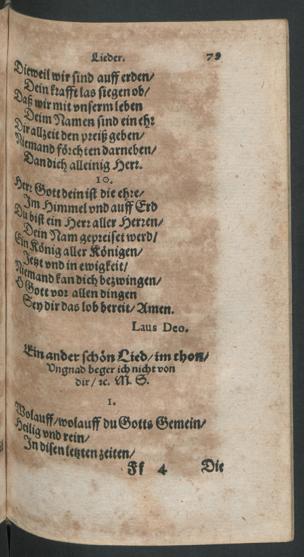 Lieder. 79
Dieweil wir sind auff erden/
Dein krafft las siegen ob/
Daß wir mit vnserm leben
Deim Namen sind ein ehr
Dir allzeit den preiß geben/
Niemand förchten darneben/
Dan dich alleinig Herr.
10.
Herr Gott dein ist die ehre/
Im Himmel vnd auff Erd
Du bist ein Herr aller Herren/
Dein Nam gepreiset werd/
Ein König aller Königen/
Jetzt vnd in ewigkeit/
Niemand kan dich bezwingen/
O Gott vor allen dingen
Sey dir das lob bereit/ Amen.
Laus Deo.
Ein ander schön Lied/ im thon/
Vngnad beger ich nicht von
dir/ ꝛc. M. S.
1.
Wolauff/ wolauff du Gotts Gemein/
Heilig vnd rein/
In disen letzten zeiten/
Ff 4 Die